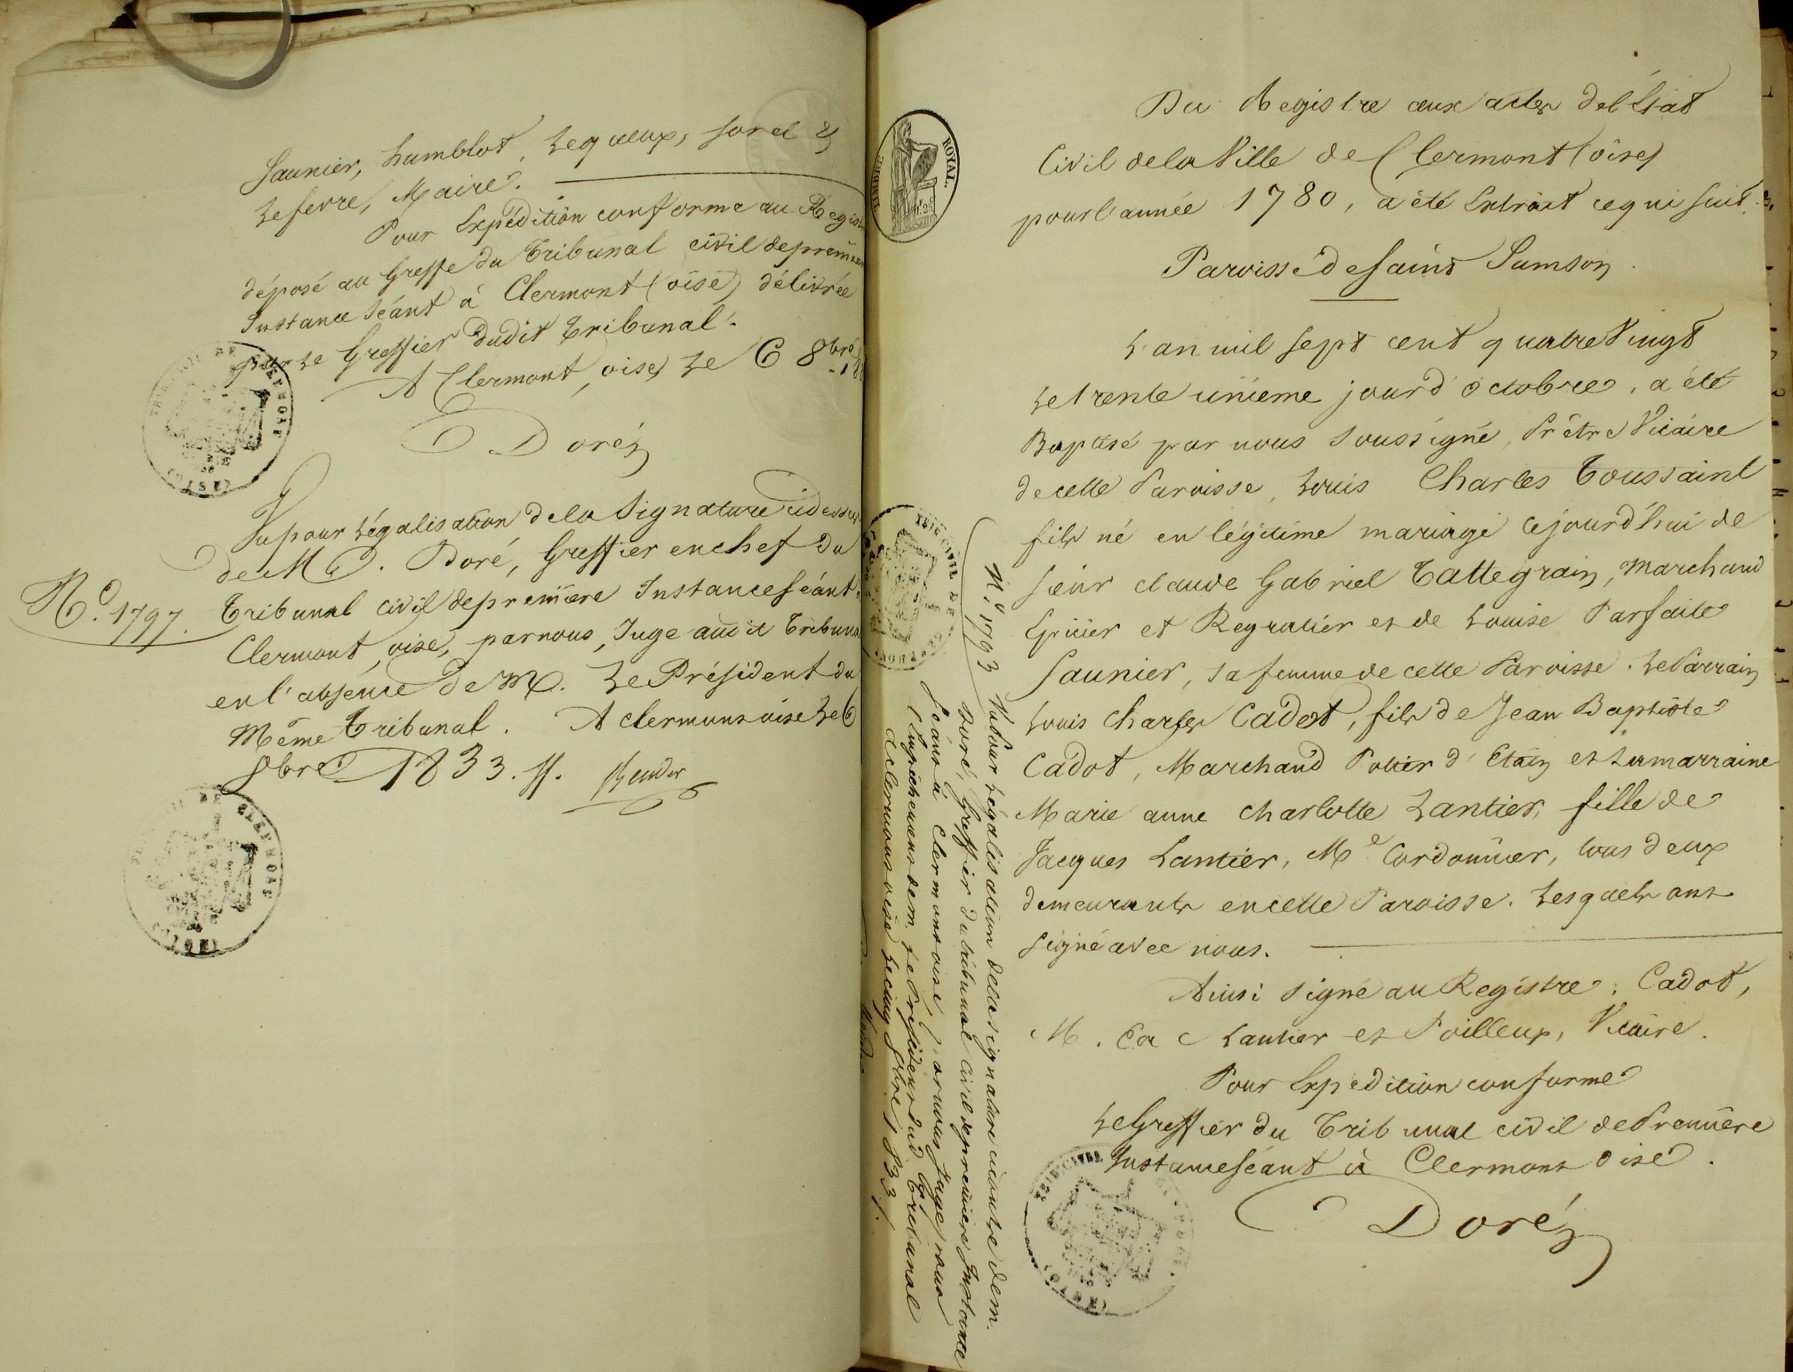 Saunier, humblot, Lequeux, Sorel &
Lefevre, Maire.
Pour Expédition conforme au Regis
déposé au Greffe du Tribunal civil de premier
Instance Séant à Clermont (oise) délivrée
par Le Greffier dudit Tribunal.
A Clermont, oise, Le 6 8bre 18
Doré
Vu pour Légalisation de la Signature ci dessus
de M. Doré, Greffier en chef du
Tribunal civil de première Instance Séant
Clermont, oise, par nous, Juge audit Tribuna
en l'absence de M. Le Président du
Même Tribunal. A clermont oise Le 6
8bre 1833. ff.
Nº. 1797.
TIMBRE ROYAL.
Du Registre aux actes de l'État
Civil de la Ville de Clermont (oise)
pour l'année 1780, a été Extrait ce qui suit.
Paroisse de Saint Samson.
L'an mil sept cent quatre Vingt
Le trente unieme jour d'octobre, a été
Baptisé par nous Soussigné, Prêtre Vicaire
de cette Paroisse, Louis Charles Toussaint
fils né en légitime mariage cejourd'hui de
Sieur claude Gabriel Tattegrain, Marchand
Epicier et Regratier et de Louise Parfaite
Saunier, sa femme de cette Paroisse. Le Parrain
Louis Charles Cadot, fils de Jean Baptiste
Cadot, Marchand Potier d'Etain et La marraine
Marie anne Charlotte Lantier, fille de
Jacques Lantier, Md Cordonnier, tous deux
demeurants en cette Paroisse. Lesquels ont
Signé avec nous.
Ainsi Signé au Registre: Cadot,
M. Ca C Lantier et Poilleux, Vicaire.
Pour Expédition conforme
Le Greffier du Tribunal civil de Première
Instance Séant à Clermont oise.
Doré
Nº 1793 Vu Pour Légalisation de la signature cicontre de m.
Doré, Greffier du tribunal civil de première Instance
Séant à Clermont oise, Par nous Juge pour
l'empêchement de m. Le Président dud. tribunal
A clermont oise Le cinq 8bre 1833.